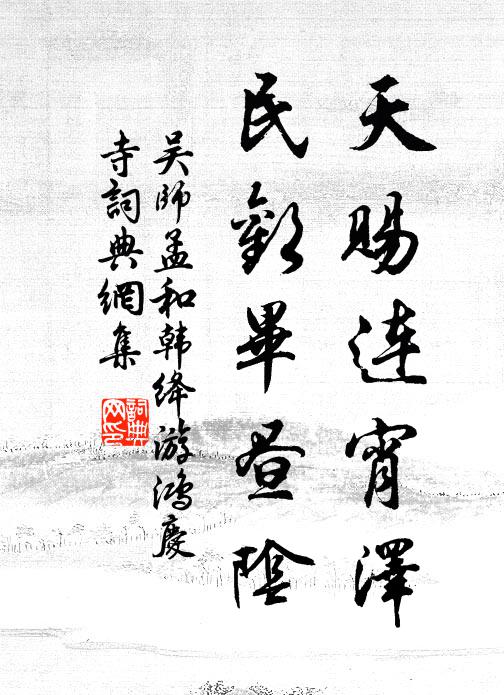 天賜連宵澤
民歡畢昼陰
吴師孟和韩绛游鴻慶
寺詞典網集
詞典
网印